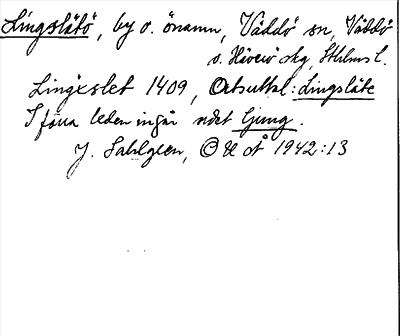 Lingslätö, by o. önamn, Väddö sn, Väddö
o. Häverö skg, Sthlms l.
Lingxslet 1409, Ortsuttal: Lingsläte
I förra leden ingår ordet ljung.
J. Sahlgren, O & Å 1942:13